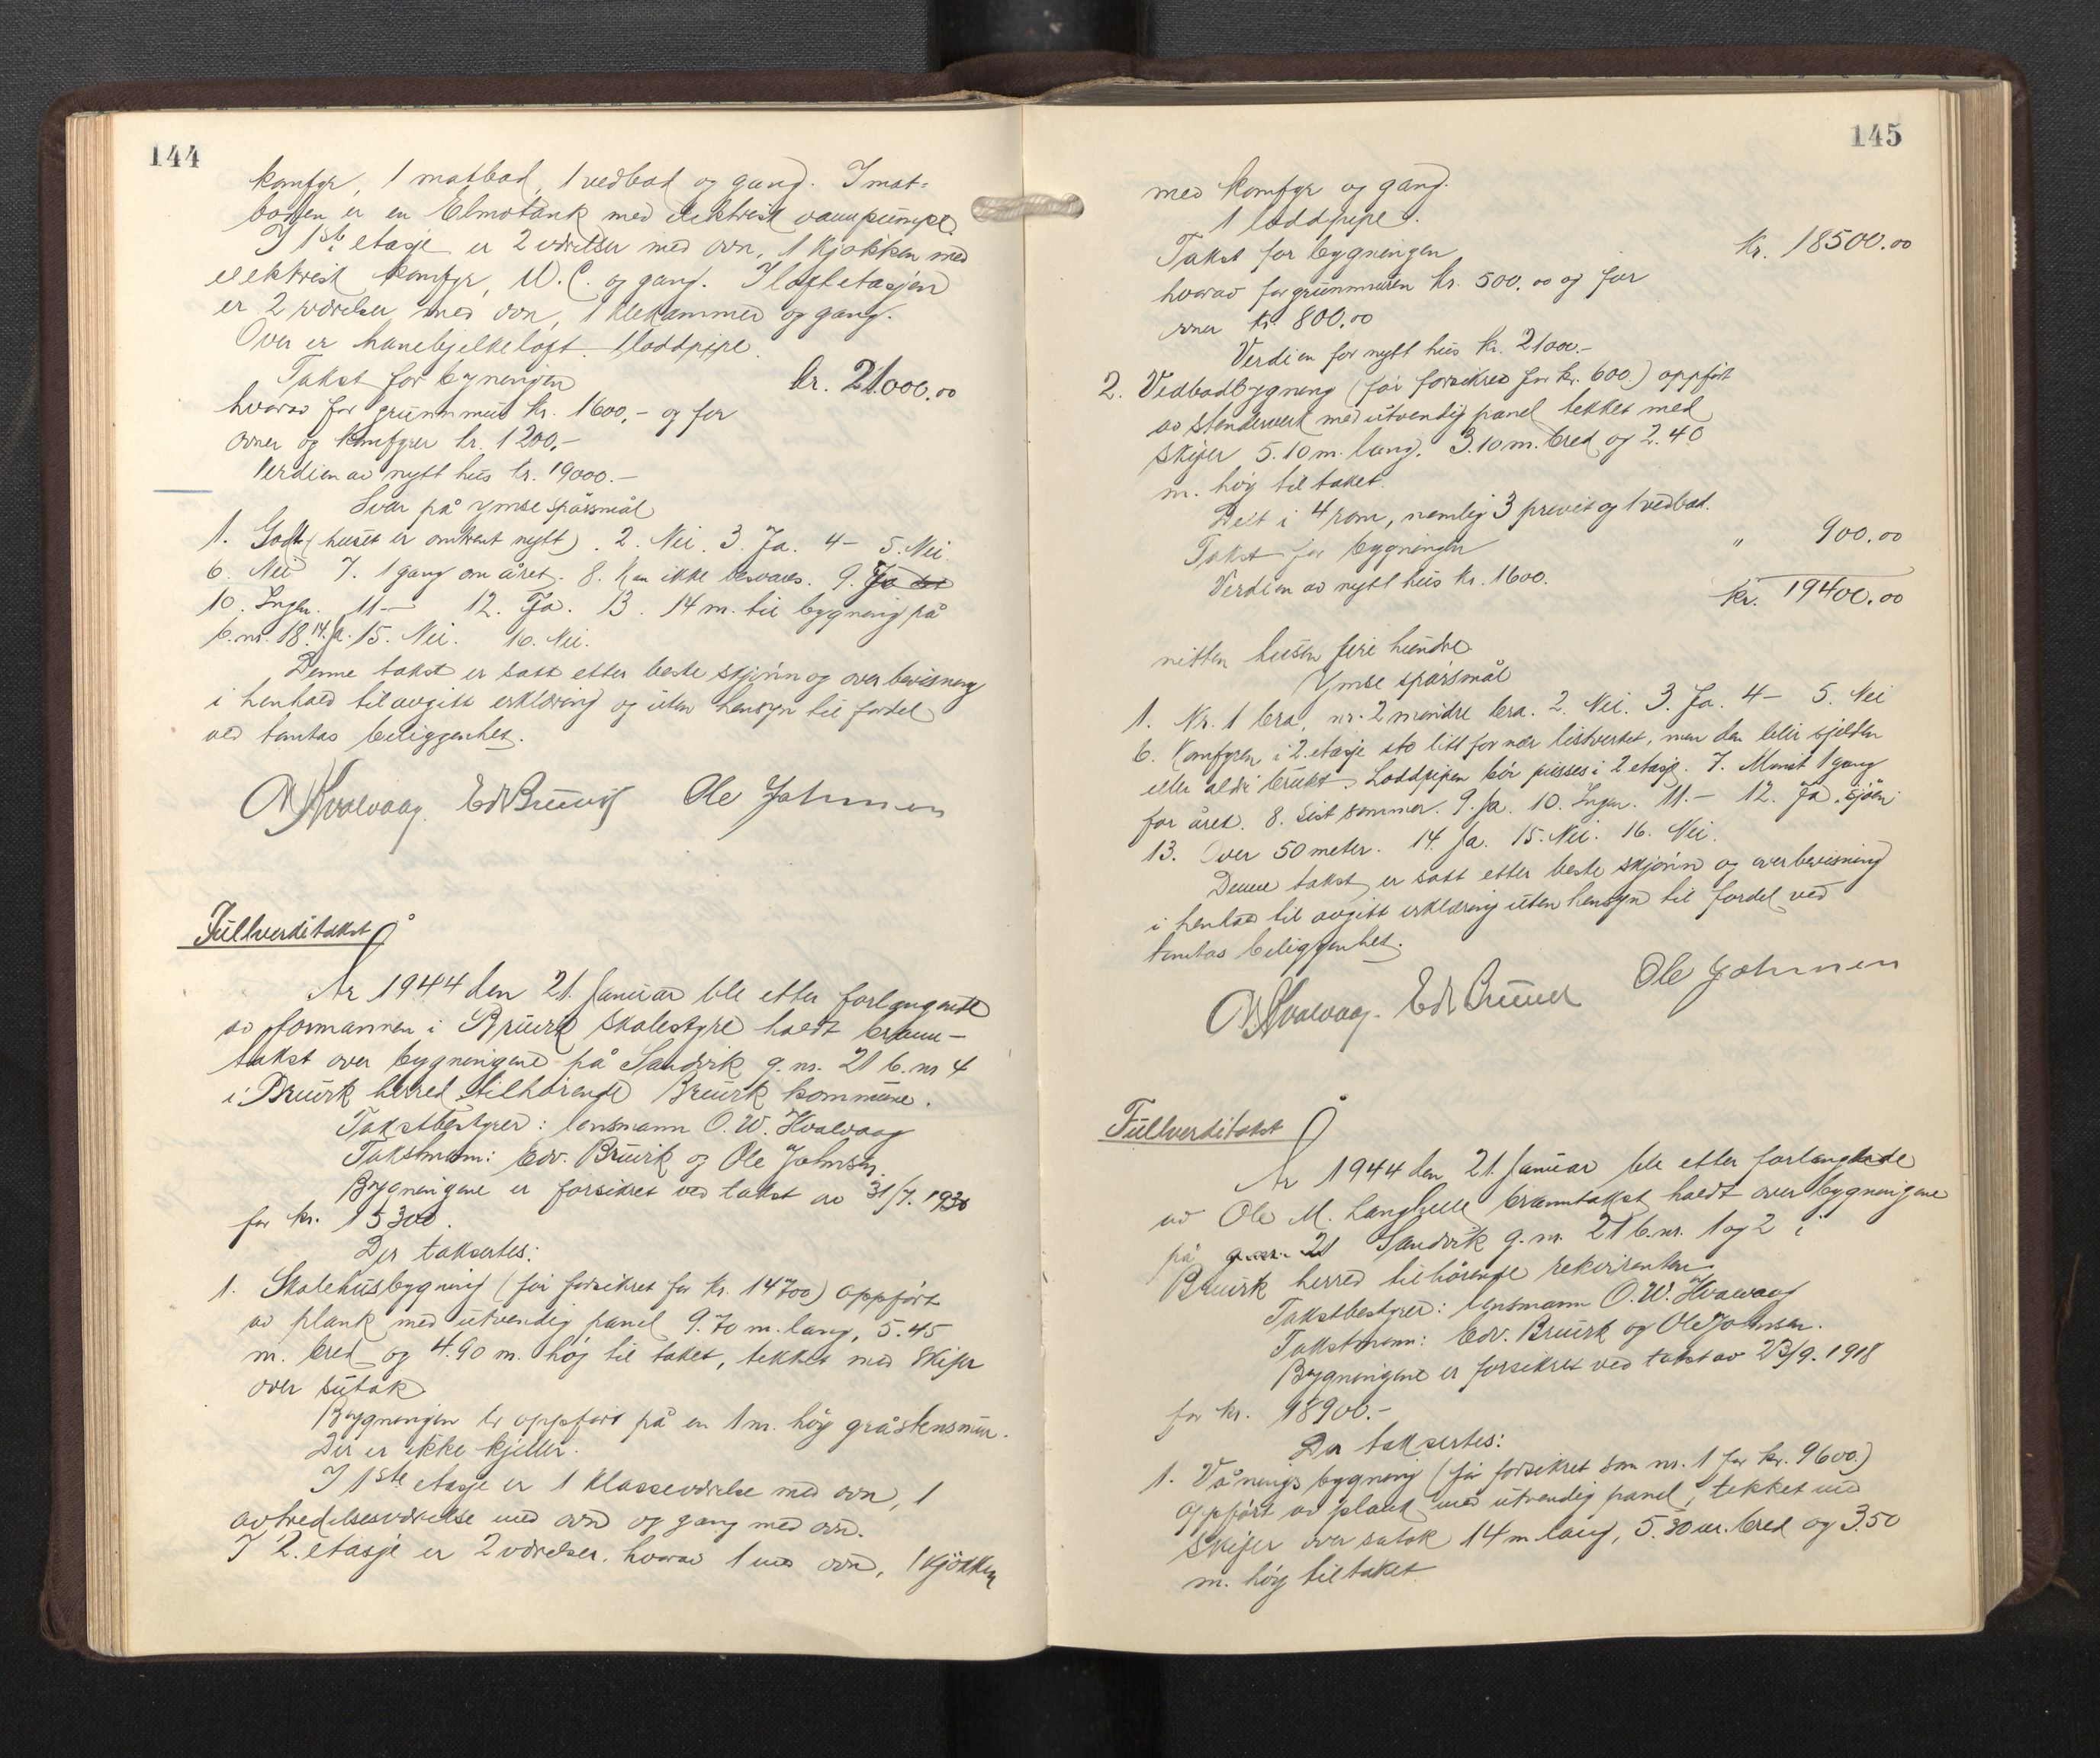 144
komfyr, 1 matbod, 1 vedbod og gang. I mat-
boden er en Elmotank med elektrisk vannpumpe.
I 1ste etasje er 2 værelser med ovn, 1 kjøkken med
elektrisk komfyr, W.C. og gang. I loftetasjen
er 2 værelser med ovn, 1 klekammer og gang.
Over er hanebjelkeloft. 1 loddpipe.
Takst for bygningen kr. 21.000.00
hvorav for grunnmur kr. 1600.- og for
ovner og komfyrer kr. 1200.-
Verdien av nytt hus kr. 19000.-
Svar på ymse spørsmål
1. Godt (huset er omtrent nytt). 2. Nei. 3. Ja. 4- 5. Nei
6. Nei 7. 1 gang om året. 8. Kan ikke besvares. 9. Ja
10. Ingen. 11- 12. Ja. 13. 14 m. til bygning på
b.nr. 18. 14. Ja. 15. Nei. 16. Nei.
Denne takst er satt etter beste skjønn og overbevisning
i henhold til avgitt erklæring og uten hensyn til fordel
ved tomtas beliggenhet.
O W Hvalvaag. Edv Bruvik Ole Johnsen
Fullverditakst
År 1944 den 21. Januar ble etter forlangende
av formannen i Bruvik skolestyre holdt brann-
takst over bygningene på Sandvik g.nr. 21 b.nr 4
i Bruvik herred tilhørende Bruvik kommune.
Takstbestyrer: lensmann O. W. Hvalvaag
Takstmenn: Edv. Bruvik og Ole Johnsen.
Bygningene er forsikret ved takst av 31/7. 1930
for kr. 15300.
Der taksertes:
1. Skolehusbygning (før forsikret for kr. 14700) oppført
av plank med utvendig panel 9.70 m. lang, 5.45
m. bred og 4.90 m. høg til taket, tekket med skifer
over sutak.
Bygningen er oppført på en 1 m. høg gråstensmur.
Der er ikke kjeller.
I 1ste etasje er 1 klasseværelse med ovn, 1
avtredelsesværelse med ovn og gang med ovn.
I 2. etasje er 2 værelser, hvorav 1 med ovn, 1 kjøkken
145
med komfyr og gang.
1 loddpipe.
Takst for bygningen kr. 18500.00
hvorav for grunnmuren kr. 500.00 og for
ovner kr. 800.00
Verdien for nytt hus kr. 21000.-
2. Vedbodbygning (før forsikret for kr. 600.) oppført
av stenderverk med utvendig panel tekket med
skifer 5.10 m. lang. 3.10 m. bred og 2.40
m. høg til taket.
Delt i 4 rom, nemlig 3 prevet og 1 vedbod.
Takst for bygningen " 900.00
Verdien av nytt hus kr. 1600.
kr. 19400.00
nitten tusen fire hundre
Ymse spørsmål
1. Nr. 1 bra, nr. 2 mindre bra. 2. Nei. 3. Ja. 4- 5. Nei
6. Komfyren i 2. etasje sto litt for nær listverket, men den blir sjelden
eller aldri brukt. Loddpipen bør pusses i 2 etasje. 7. Minst 1 gang
for året. 8. Sist sommer. 9. Ja. 10. Ingen. 11.- 12. Ja, sjøen
13. Over 50 meter. 14. Ja. 15. Nei. 16. Nei.
Denne takst er satt etter beste skjønn og overbevisning
i henhold til avgitt erklæring uten hensyn til fordel ved
tomtas beliggenhet.
O W Hvalvaag. Edv Bruvik Ole Johnsen
Fullverditakst
År 1944 den 21. Januar ble etter forlangende
av Ole M. Langhelle branntakst holdt over bygningene
på Sandvik g.nr. 21 b.nr. 1 og 2 i
Bruvik herred tilhørende rekvirenten.
Takstbestyrer: lensmann O. W. Hvalvaag
Takstmenn: Edv. Bruvik og Ole Johnsen.
Bygningene er forsikret ved takst av 23/9. 1918
for kr. 18900.-
Der taksertes:
1. Våningsbygning (før forsikret som nr. 1 for kr. 9600.)
oppført av plank med utvendig panel, tekket med
skifer over sutak 14 m lang, 5.30 m. bred og 3.50
m. høg til taket